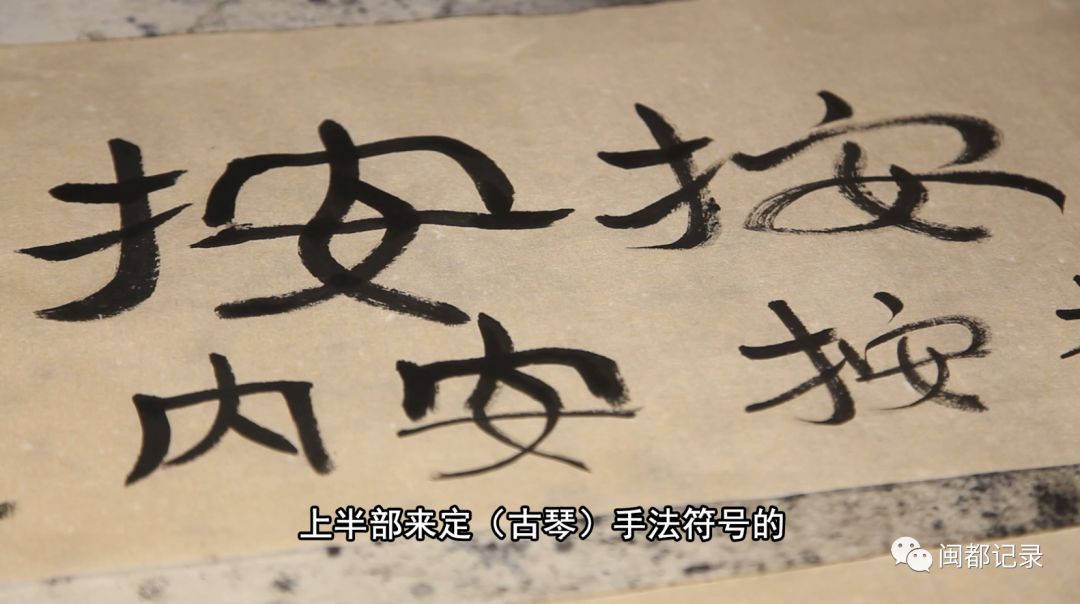 按 按
内 安 按
上半部来定（古琴）手法符号的
闽都记录